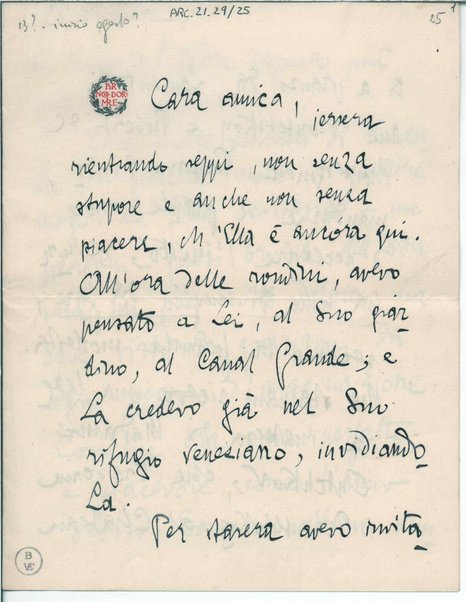 ARC.21.29/25
13? - inizio agosto?
25 1
PER
NON DOR
MIRE
Cara amica,
iersera
rientrando seppi, non senza
stupore e anche non senza
piacere, ch'Ella è ancora qui.
All'ora delle rondini, avevo
pensato a Lei, al Suo giar-
dino, al Canal Grande; e
La credevo già nel Suo
rifugio veneziano, invidiando-
La.
Per stasera avevo invita-
B
VE